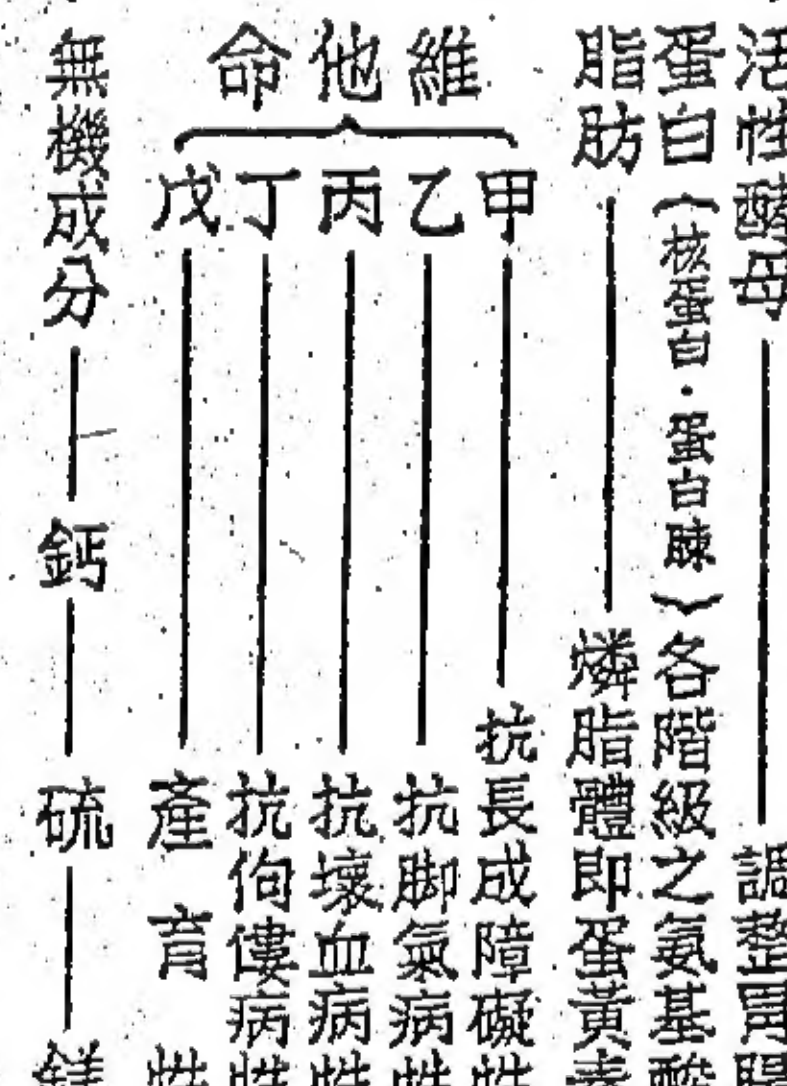 活性酵母——調整胃腸
蛋白(核蛋白·蛋白陳)各階級之氨基酸
脂肪——燐脂體即蛋黃素
維他命
甲——抗長成障礙性
乙——抗脚氣病性
丙——抗壞血病性
丁——抗佝僂病性
戊——產育性
無機成分——鈣——硫——鎂